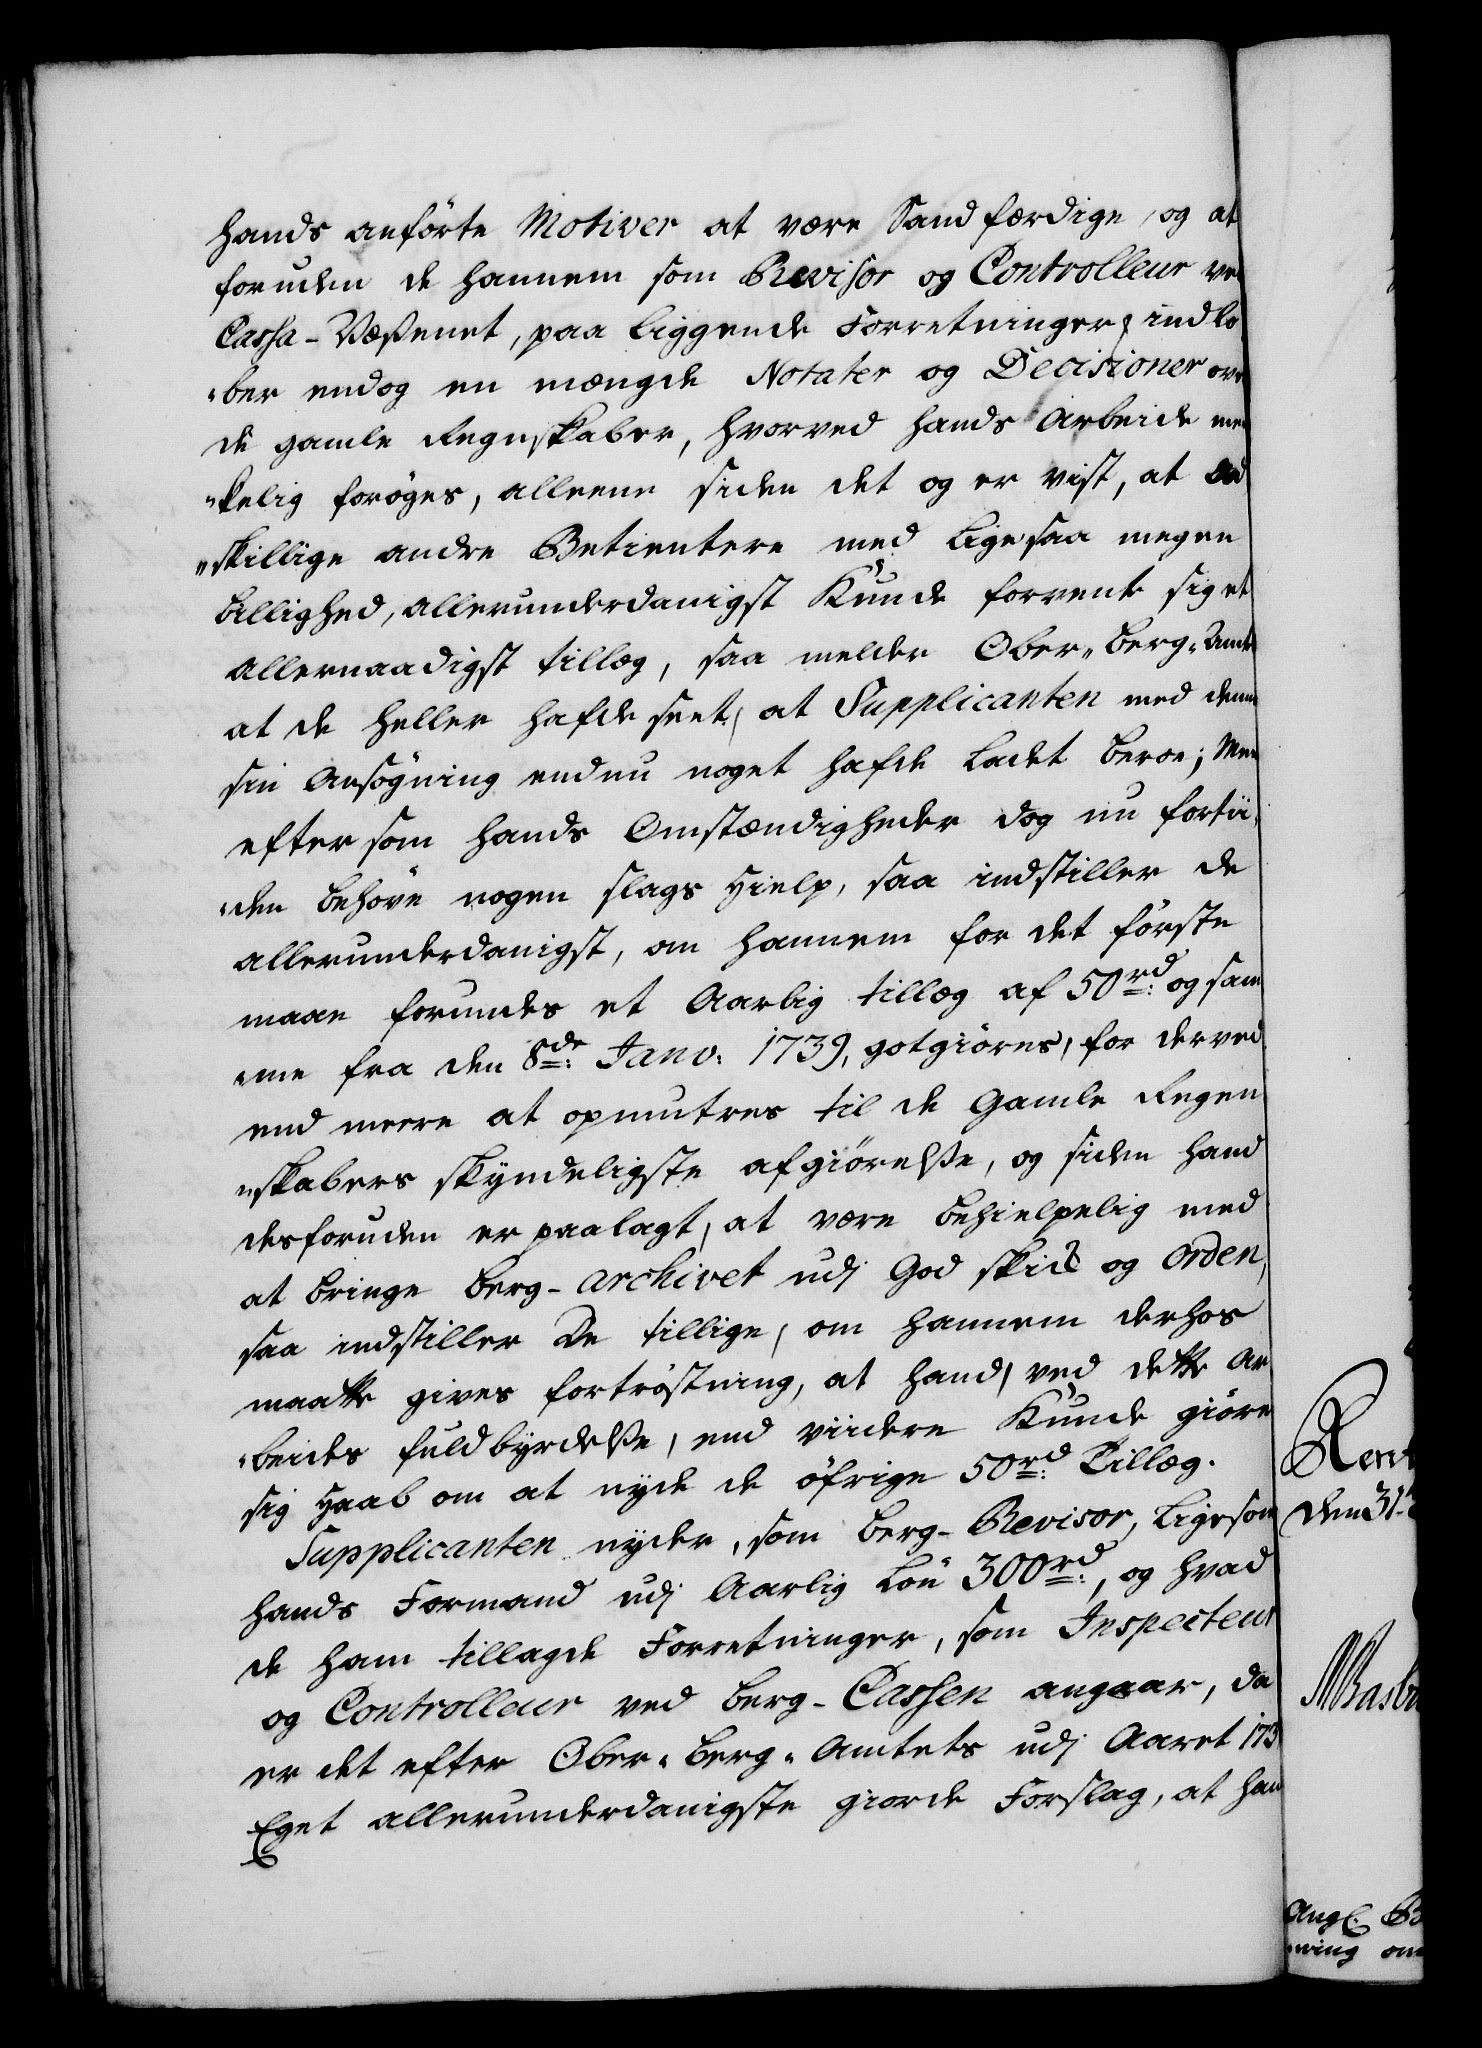 hands anförte Motiver at være Sandfærdige, og at
foruden de hannem som Revisor og Controlleur ve
Cassa-Væßenet, paa liggende Forretninger, indlö
"ber endog en mængde Notater og Decisioner ove
de gamle Regnskaber, hvorved hands Arbeide mer
"kelig forøges, alleene siden det og er vist, at ad
"skillige andre Betientere med ligesaa megen
billighed, allerunderdanigst Kunde forvente sig et
allernaadigst tillæg, saa melder Ober-Berg-Amte
at de heller hafde seet, at Supplicanten med denne
sin Ansøgning endnu noget hafde ladet beroe; Men
efter som hands Omstændigheder dog nu fortii,
"den behöve nogen slags Hielp, saa indstiller de
allerunderdanigst, om hannem for det förste
maae forundes et Aarlig tillæg af 50 rd: og sam
"me fra den 8de: Janv: 1739, gotgiöres, for derved
end meere at opmuntres til de gamle Regen
"skabers skyndeligste afgiörelße, og siden hand
desforuden er paalagt, at være behielpelig med
at bringe Berg-Archivet udj God skik og Orden,
saa indstiller De tillige, om hannem derhos
maatte gives fortröstning, at hand, ved dette Ar
"beides fuldbyrdelße, end viidere Kunde giöre
sig Haab om at nyde de öfrige 50 rd: Tillæg.
Supplicanten nyder, som Berg-Revisor, ligesom
hands Formand udj Aarlig Lön 300 rd:, og hvad
de ham tillagde Forretninger, som Inspecteur
og Controlleur ved Berg-Cassen angaar, da
er det efter Ober-Berg-Amtets udj Aaret 173
Eget allerunderdanigste giorde Forslag, at han
Rent
den 31
Angl. B
ning om